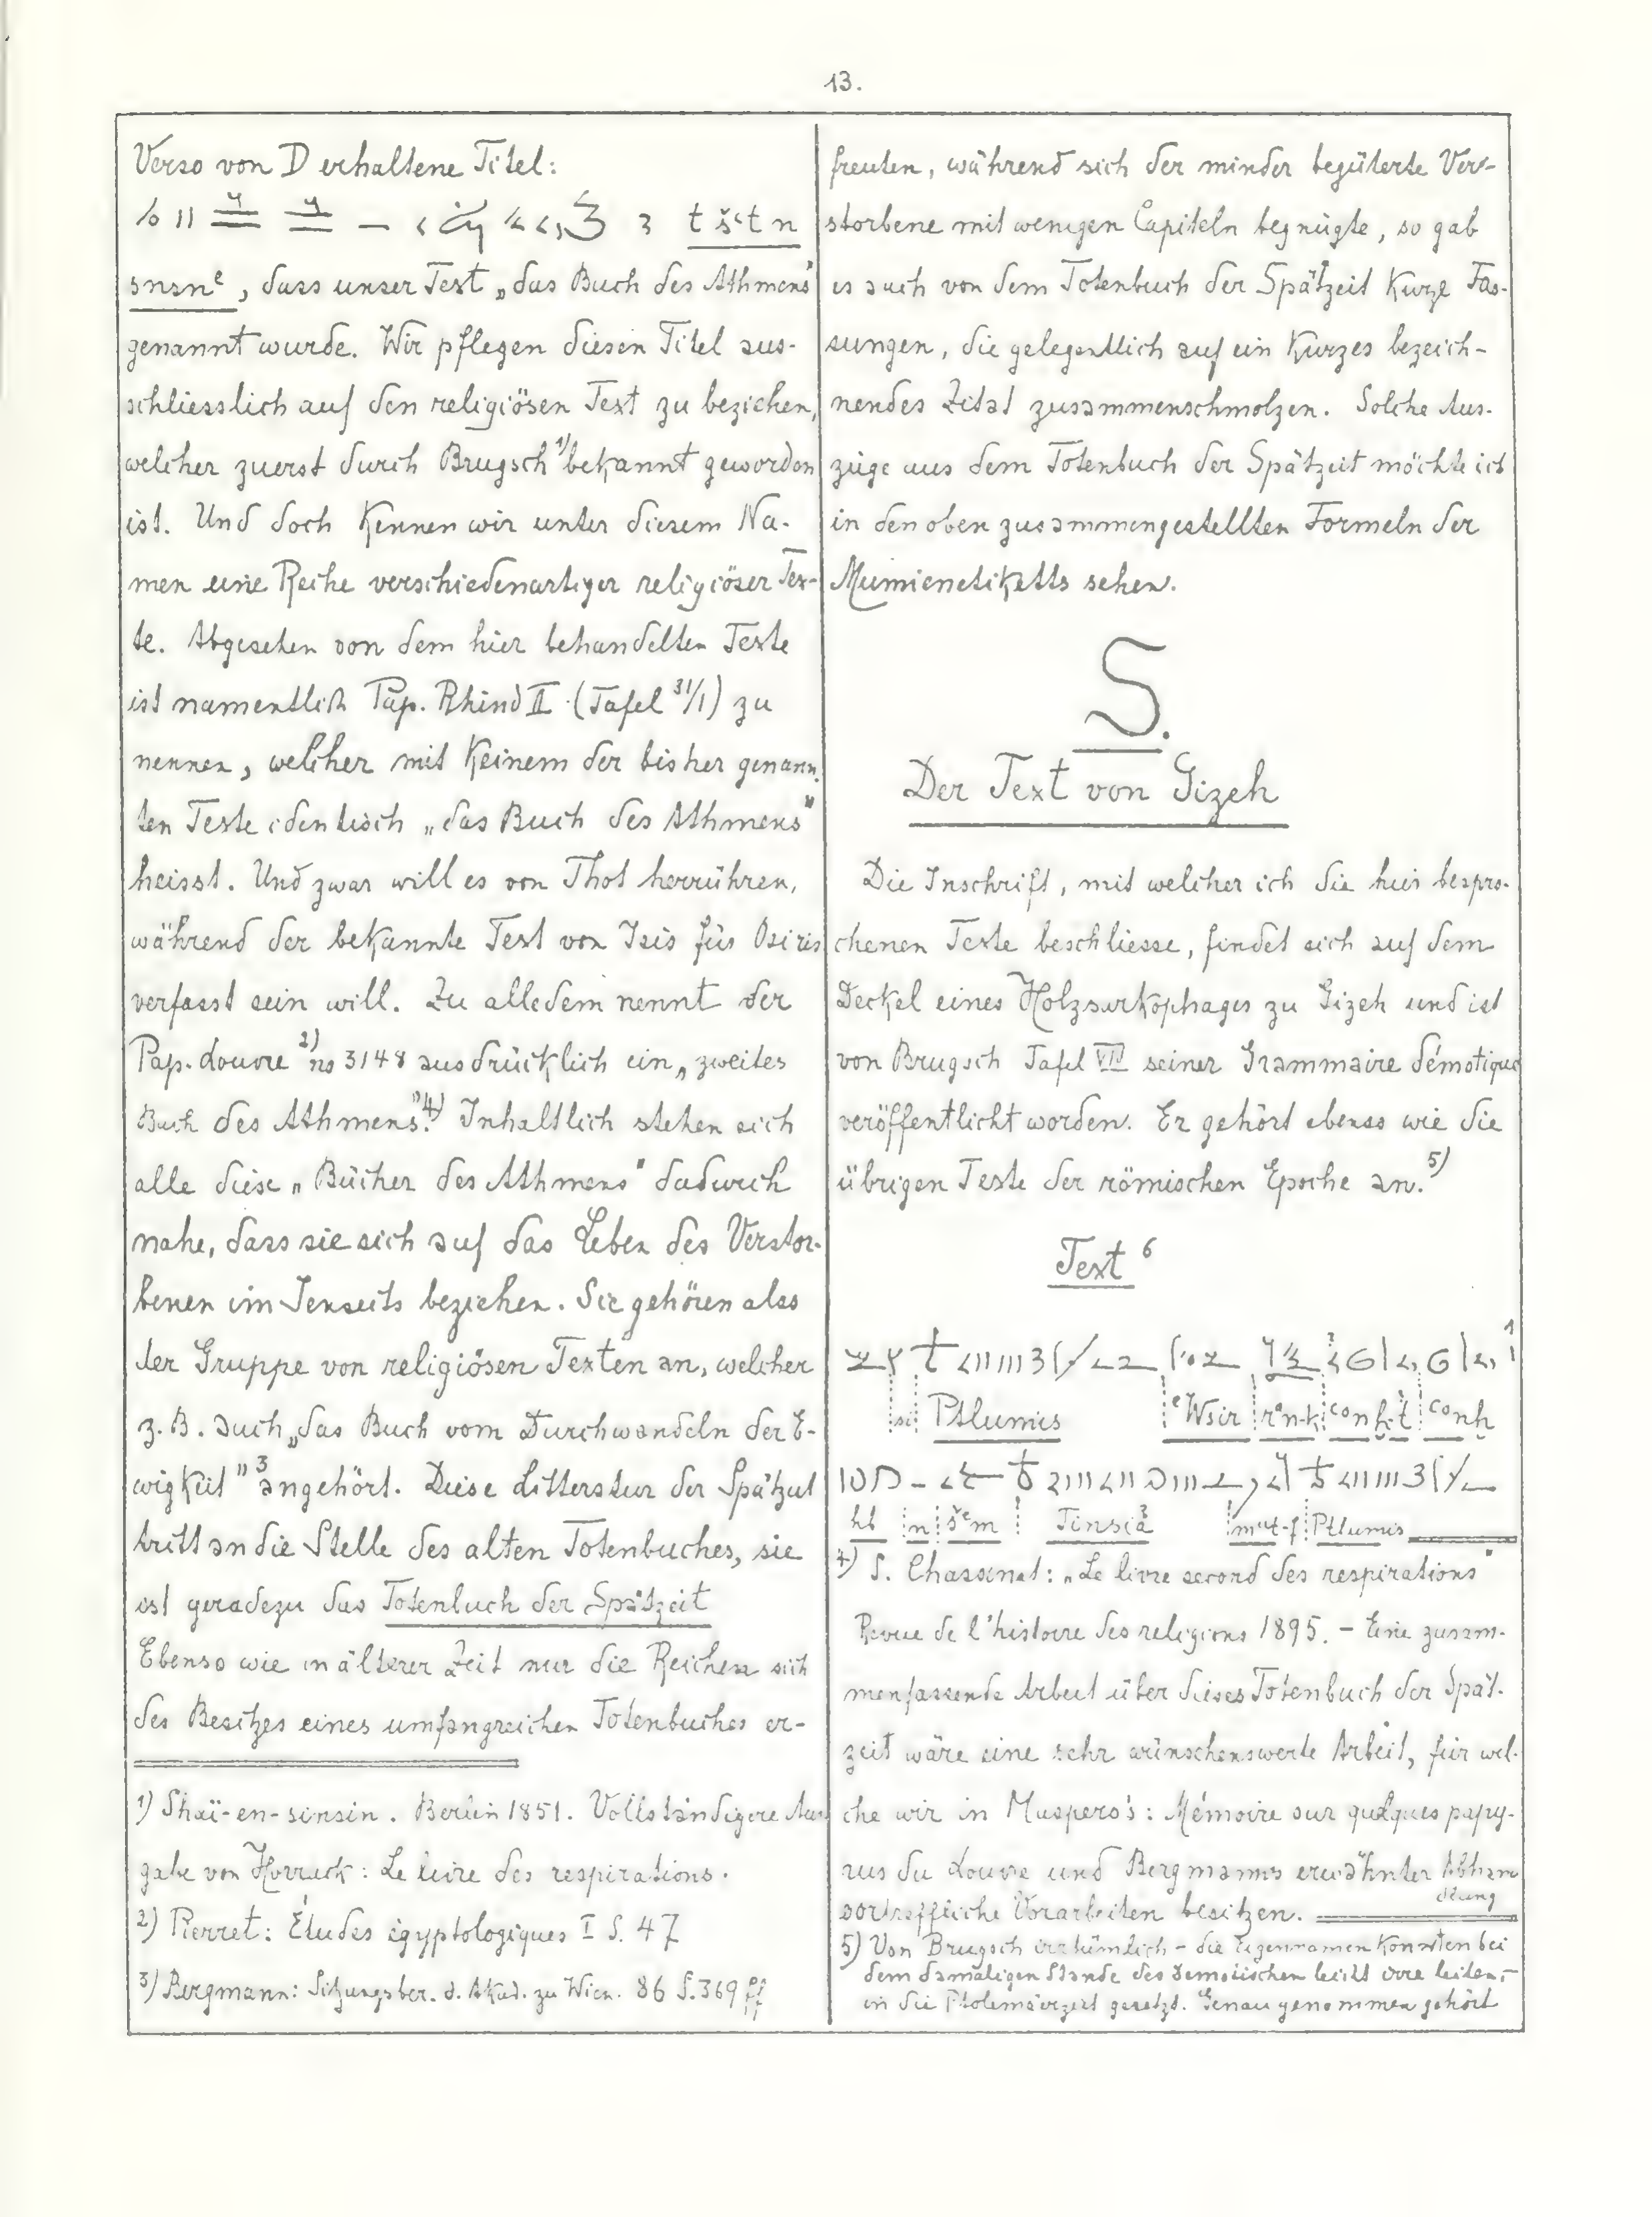 13.
Verso von D erhaltene Titel:
t šꜥt n
snsn , dass unser Text „das Buch des Athmens"
genannt wurde. Wir pflegen diesen Titel aus-
schliesslich auf den religiösen Text zu beziehen,
welcher zuerst durch Brugsch 1) bekannt geworden
ist. Und doch kennen wir unter diesem Na-
men eine Reihe verschiedenartiger religiöser Tex-
te. Abgesehen von dem hier behandelten Texte
ist namentlich Pap. Rhind II (Tafel 31/1) zu
nennen, welcher mit keinem der bisher genann-
ten Texte identisch „das Buch des Athmens"
heisst. Und zwar will es von Thot herrühren,
während der bekannte Text von Isis für Osiris
verfasst sein will. Zu alledem nennt der
Pap. Louvre 2) no 3148 ausdrücklich ein „zweites
Buch des Athmens". 4) Inhaltlich stehen sich
alle diese „Bücher des Athmens" dadurch
nahe, dass sie sich auf das Leben des Verstor-
benen im Jenseits beziehen. Sie gehören also
der Gruppe von religiösen Texten an, welcher
z. B. auch „das Buch vom Durchwandeln der E-
wigkeit" 3 angehört. Diese Litteratur der Spätzeit
tritt an die Stelle des alten Totenbuches, sie
ist geradezu das Totenbuch der Spätzeit
Ebenso wie in älterer Zeit nur die Reichen sich
des Besitzes eines umfangreichen Totenbuches er-
1) Shaï-en-sinsin. Berlin 1851. Vollständigere Aus
gabe von Horrack: Le livre des respirations.
2) Pierret: Études égyptologiques I S. 47
3) Bergmann: Sitzungsber. d. Akad. zu Wien. 86 S. 369 ff
freuten, während sich der minder begüterte Ver-
storbene mit wenigen Capiteln begnügte, so gab
es auch von dem Totenbuch der Spätzeit kurze Fas-
sungen, die gelegentlich auf ein kurzes bezeich-
nendes Zitat zusammenschmolzen. Solche Aus-
züge aus dem Totenbuch der Spätzeit möchte ich
in den oben zusammengestellten Formeln der
Mumienetiketts sehen.
S.
Der Text von Gizeh
Die Inschrift, mit welcher ich die hier bespro-
chenen Texte beschliesse, findet sich auf dem
Deckel eines Holzsarkophages zu Gizeh und ist
von Brugsch Tafel VII seiner Grammaire démotique
veröffentlicht worden. Er gehört ebenso wie die
übrigen Texte der römischen Epoche an. 5)
Text 6
si Ptlumis Wsir
ht n Tinsia mut-f Ptlumis
4) S. Chassinat: „Le livre second des respirations"
Revue de l'histoire des religions 1895. – Eine zusam-
menfassende Arbeit über dieses Totenbuch der Spät-
zeit wäre eine sehr wünschenswerte Arbeit, für wel-
che wir in Maspero's: Mémoire sur quelques papy-
rus du Louvre und Bergmanns erwähnter Abhan
dlung
vortreffliche Vorarbeiten besitzen.
5) Von Brugsch irrtümlich – die Eigennamen konnten bei
dem damaligen Stande des Demotischen leicht irre leiten –
in die Ptolemäerzeit gesetzt. Genau genommen gehört